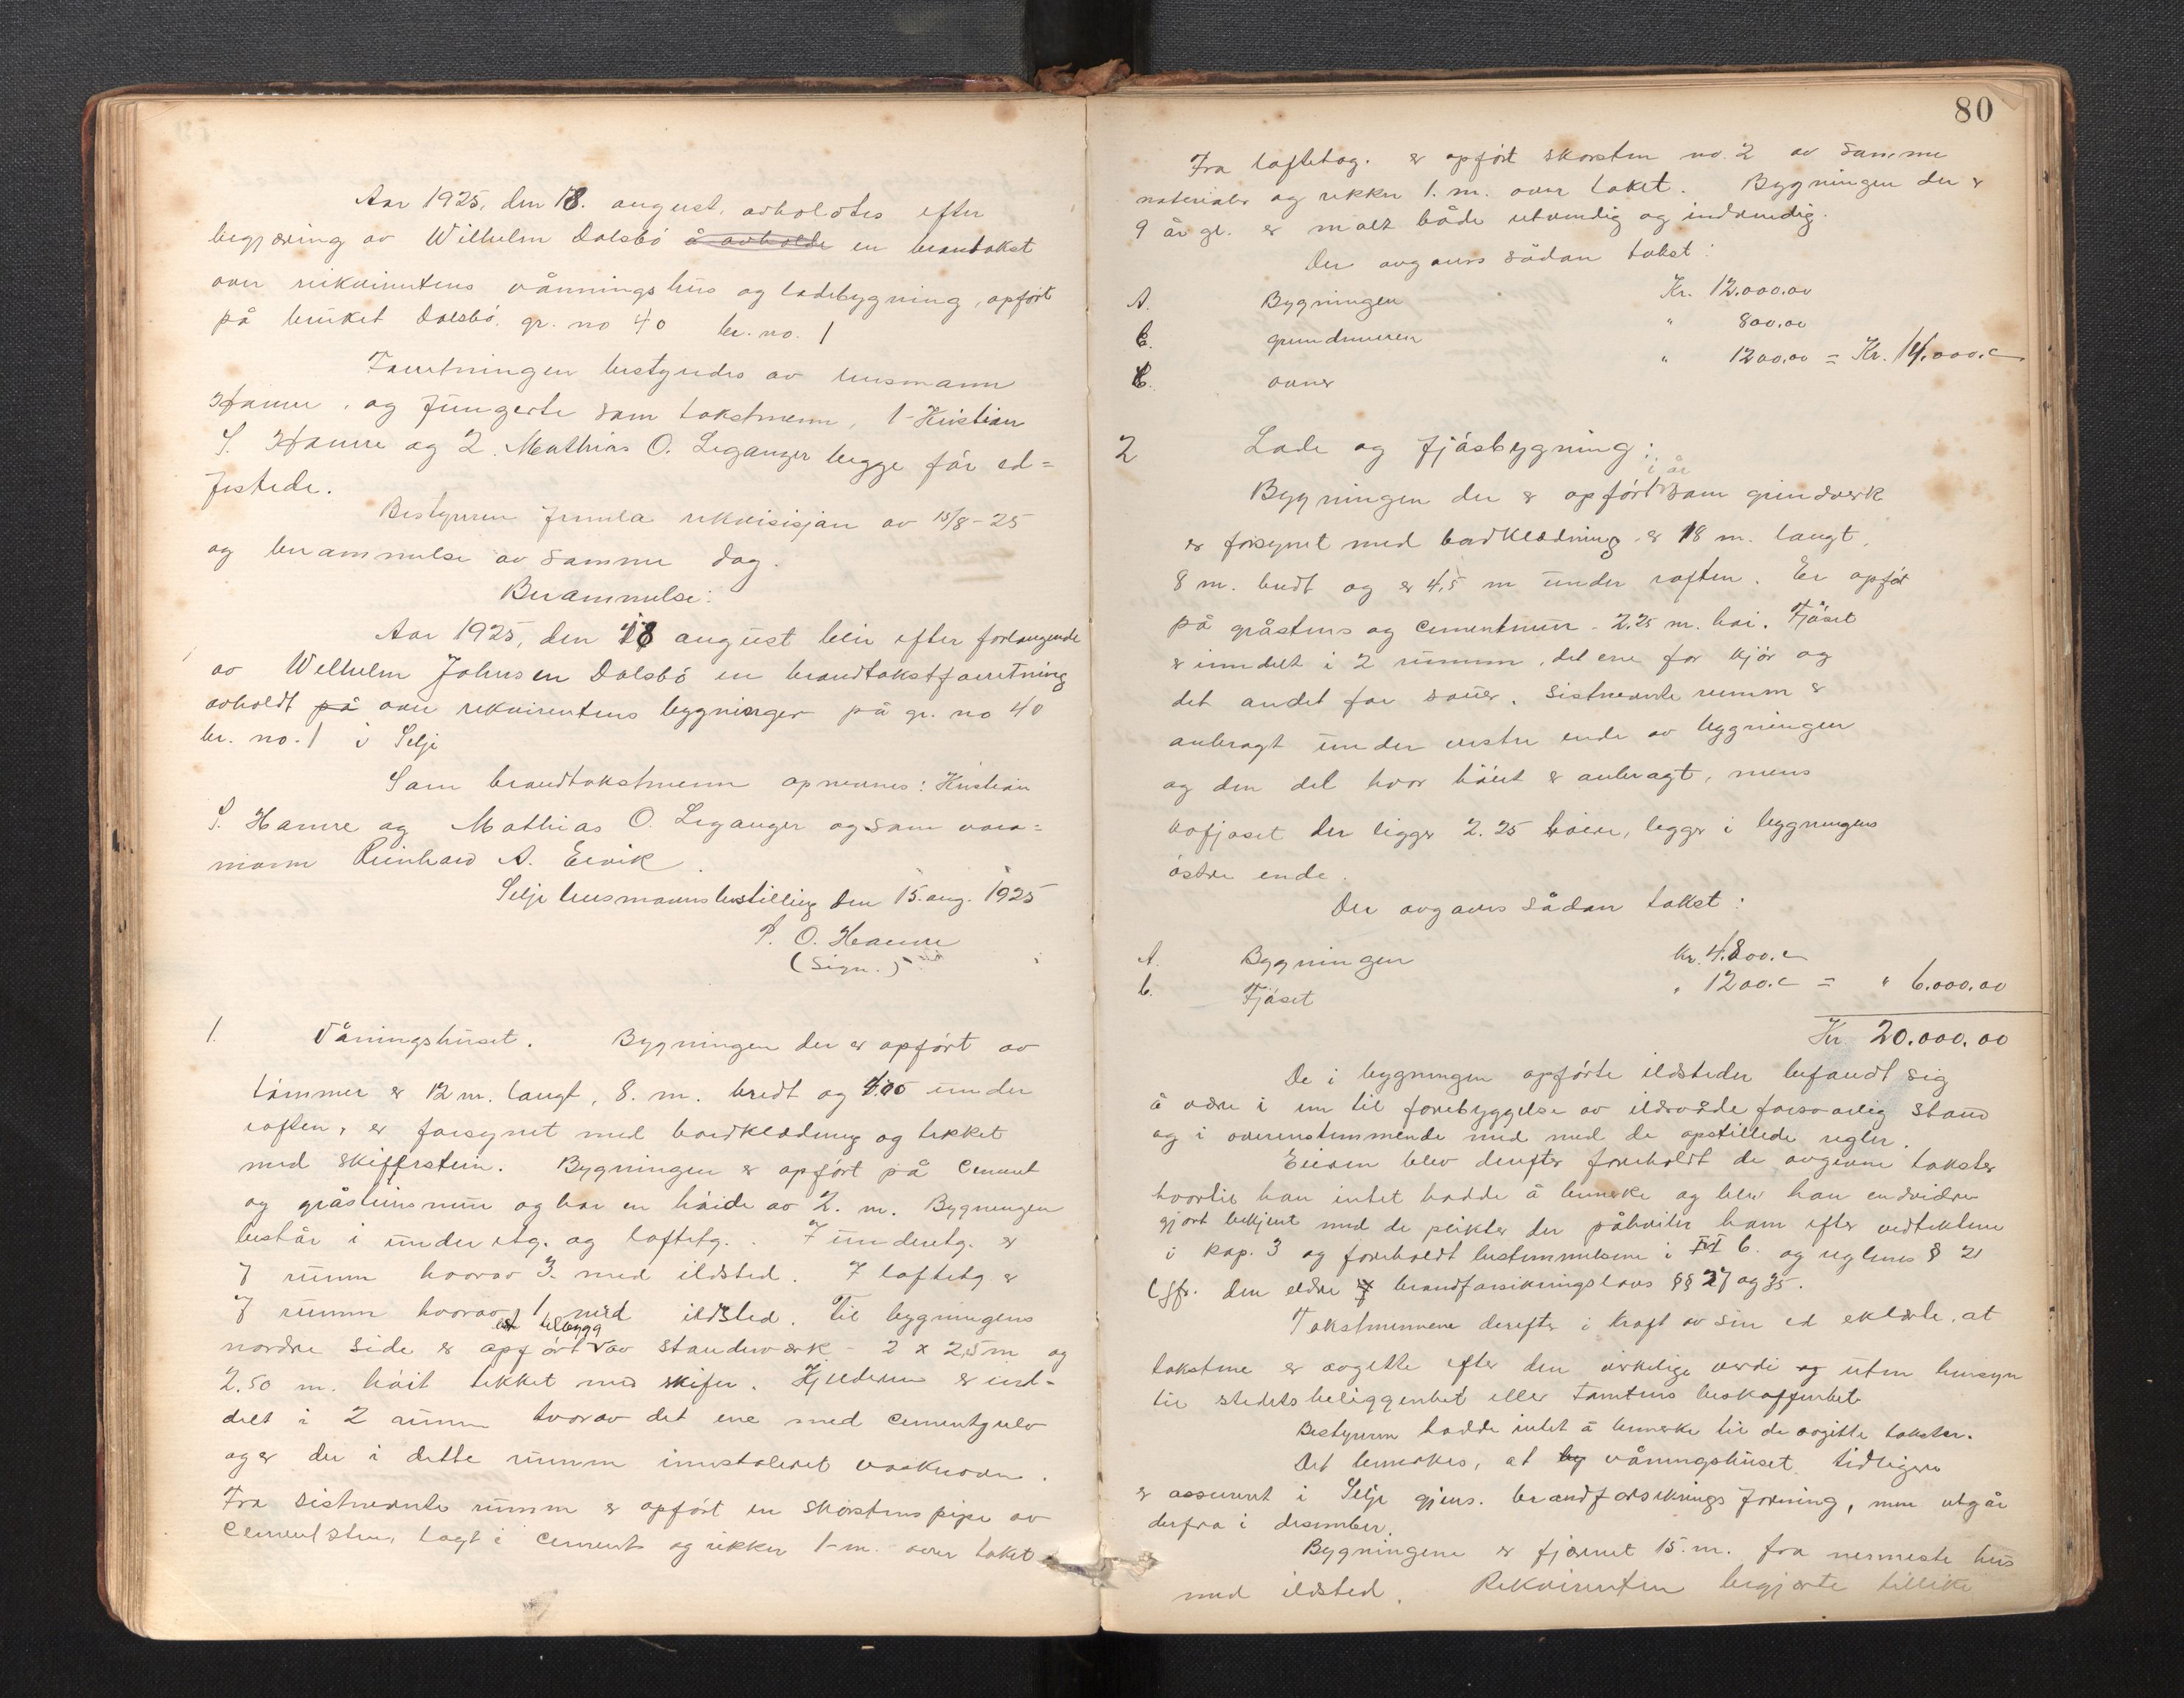 Aar 1925, den 18. august, avholdtes efter
begjæring av Wilhelm Dalsbö å avholde en brantakst
over rekvirentens vånningshus og ladebygning, opfört
på bruket Dalsbö, gr. no 40 br. no. 1
Forretningen bestyredes av lensmann
Hamre, og fungerte som takstmenn, 1 Kristian
S. Hamre og 2. Mathias O. Leganger begge för ed=
festede.
Bestyreren fremla rekvisisjon av 15/8-25
og berammelse av samme dag.
Berammelse:
Aar 1925, den 18 august blir efter forlangende
av Wilhelm Johnsen Dalsbö en brandtakstforretning
avholdt på over rekvirentens bygninger på gr. no 40
br. no. 1 i Selje
Som brandtakstmenn opnevnes: Kristian
S. Hamre og Mathias O. Leganger og som vara=
mann Reinhard A. Ervik
Selje lensmannsbestilling den 15. aug. 1925
P. O. Hamre
(sign.)
1. Våningshuset. Bygningen der er opfört av
tömmer er 12 m. langt, 8. m. bredt og under
raften, er forsynet med bordklædning og tekket
med skifferstein. Bygningen er opfört på cement
og gråsteinsmur og har en höide av 2. m. Bygningen
består i underetg. og loftetg. I underetg. er
7 rumm hvorav 3. med ildsted. I loftetg er
7 rumm hvorav 1 med ildsted. Til bygningens
et tilbygg
nordre side er opfört av standerværk - 2 x 2,5 m og
2.50 m. höit tekket med skifer. Kjelderen er ind-
delt i 2 rumm hvorav det ene med cementgulv
og er der i dette rumm innstaleret vaskeovn.
Fra sistnevnte rumm er opfört en skorstenspipe av
cementsten, lagt i cement og rekker 1-m. over taket
80
Fra loftetag. er opfört skorsten no. 2 av samme
materialer og rekker 1. m. over taket. Bygningen der er
9 år gl. er malt både utvendig og indvendig.
Der avgaves sådan takst:
A. Bygningen Kr. 12.000.00
B. grundmuren " 800.00
C. ovner " 1200.00 = Kr. 14.000.c
2 Lade og fjösbygning:
i år
Bygningen der er opfört som grindverk
er forsynet med bordklædning er 18 m. langt,
8 m. bredt og er 4,5 m under raften. Er opfört
på gråstens og cementmur - 2.25 m. höi. Fjöset
er inndelt i 2 rumm, det ene for kjör og
det andet for sauer. Sistnevnte rumm er
anbragt under vestre ende av bygningen
og den del hvor höiet er anbragt, mens
kofjöset der ligger 2.25 höiere, legger i bygningens
östre ende.
Der avgaves sådan takst:
A. Bygningen Kr. 4.800.c
b. Fjöset " 1200.c = " 6.000.00
Kr 20.000.00
De i bygningen opförte ildsteder befandt sig
å være i en til forebyggelse av ildsvåde forsvarlig stand
og i overenstemmende med med de opstillede regler.
Eieren blev derefter foreholdt de avgivne takster
hvortil han intet hadde å bemerke og blev han endvidere
gjort bekjent med de plikter der påhviler ham efter vedtektene
i kap. 3 og foreholdt bestemmelsene i III 6. og reglenes § 21
(jfr. den eldre brandforsikringslovs §§ 27 og 35.
Takstmennene derefter i kraft av sin ed erklærte, at
takstene er avgitte efter den virkelige verdi og uten hensyn
til stedets beliggenhet eller tomtens beskaffenhet
Bestyreren hadde intet å bemerke til de avgitte takster.
Det bemerkes, at by våningshuset tidligere
er assurert i Selje gjens. brandforsikrings forening, men utgår
derfra i desember.
Bygningene er fjernet 15. m. fra nermeste hus
med ildsted. Rekvirenten begjærte tillike